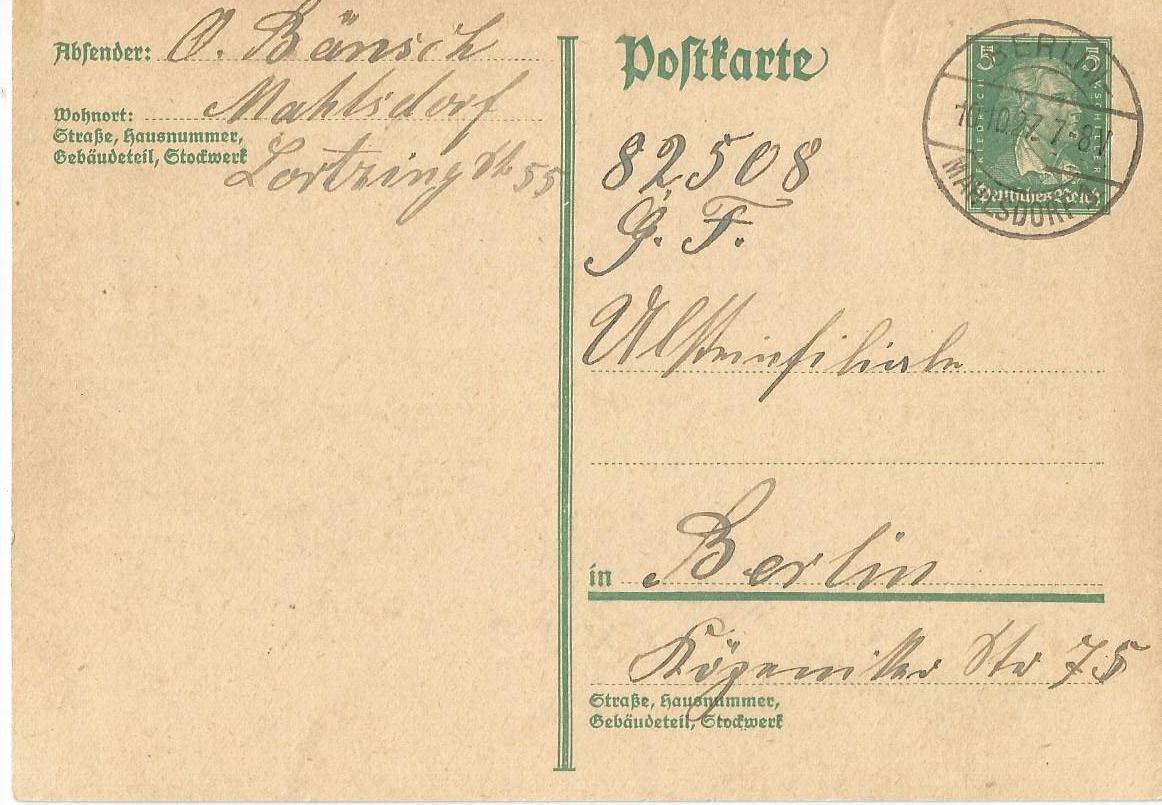 Absender: O. Bänsch
Wohnort: Mahlsdorf
Straße, Hausnummer,
Gebäudeteil, Stockwerk
Lortzing Str 55
Postkarte
82508
G. F.
Ulsteinfiliale
in Berlin
Köpeniker Str 75
Straße, Hausnummer,
Gebäudeteil, Stockwerk
5 5
FRIEDRICH V. SCHILLER
Deutsches Reich
BERLIN
10.27. 7-8V
MAHLSDORF